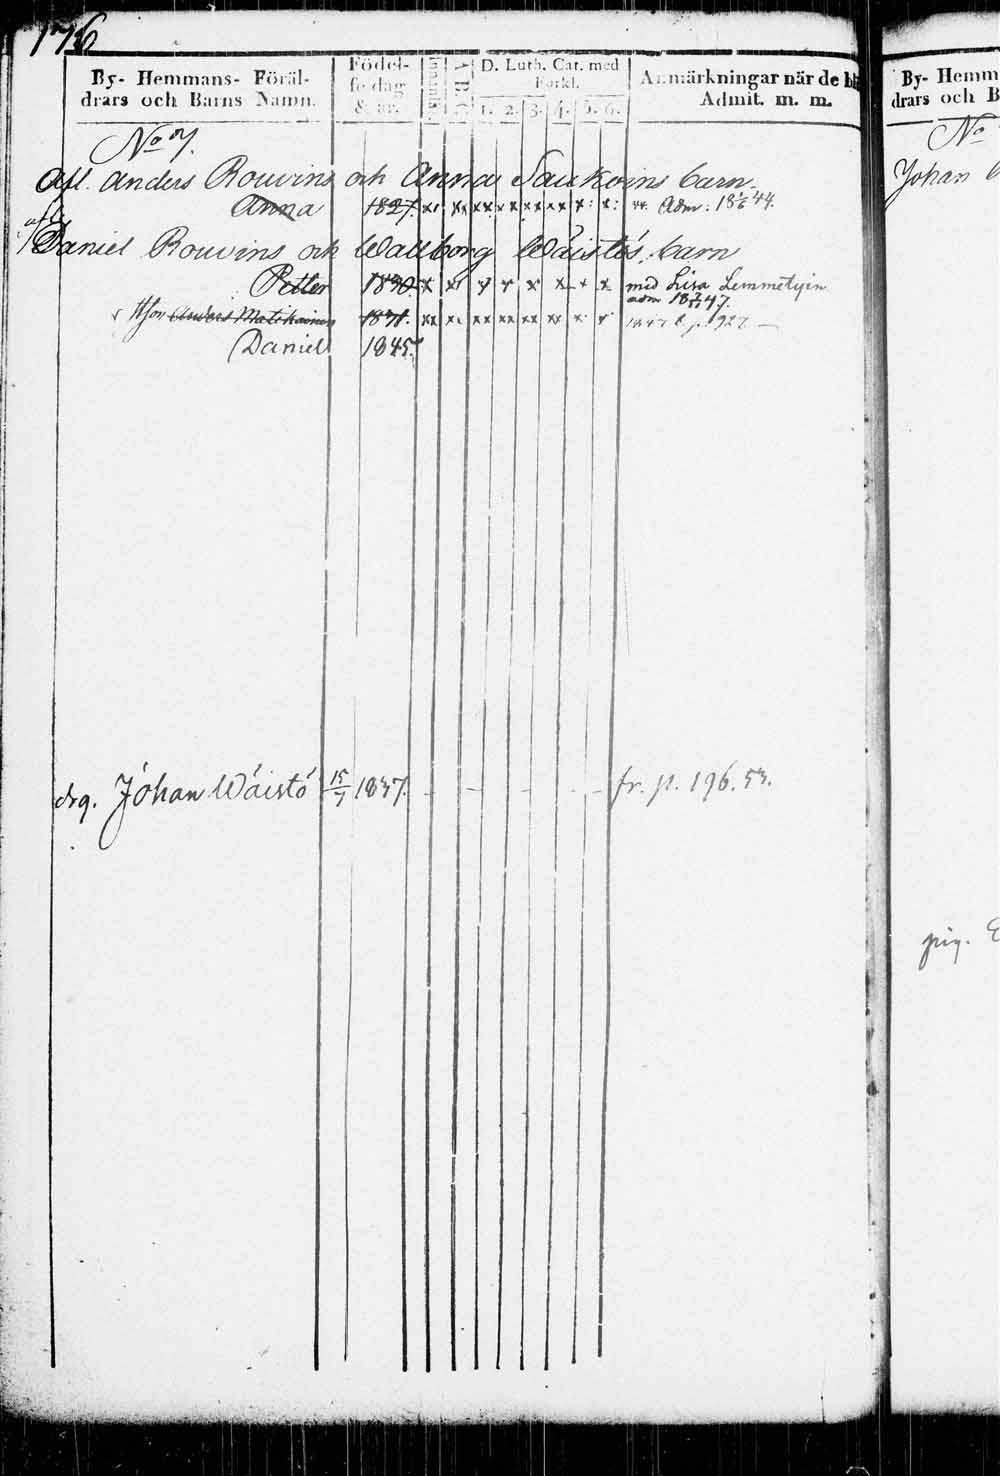 176
By- Hemmans- Föräldrars och Barns Namn.
Födelsedag & år.
A B C
D. Luth. Cat. med Förkl.
1. 2. 3. 4. 5. 6.
Anmärkningar när de bli
Admit. m. m.
No 7.
Afl. Anders Rouvins och Anna Saukoins barn
Anna 1827. Adm: 18 44.
afl. Daniel Rouvins och Wallborg Wäistös barn
Petter 1830. med Lisa Lemmetyin
adm 18 47.
Anders Matikainen 1831.
Daniel 1845.
drg. Johan Wäistö 15/7 1837. fr. p. 196. 53.
By- Hemm
drars och B
No
Johan
pig. E